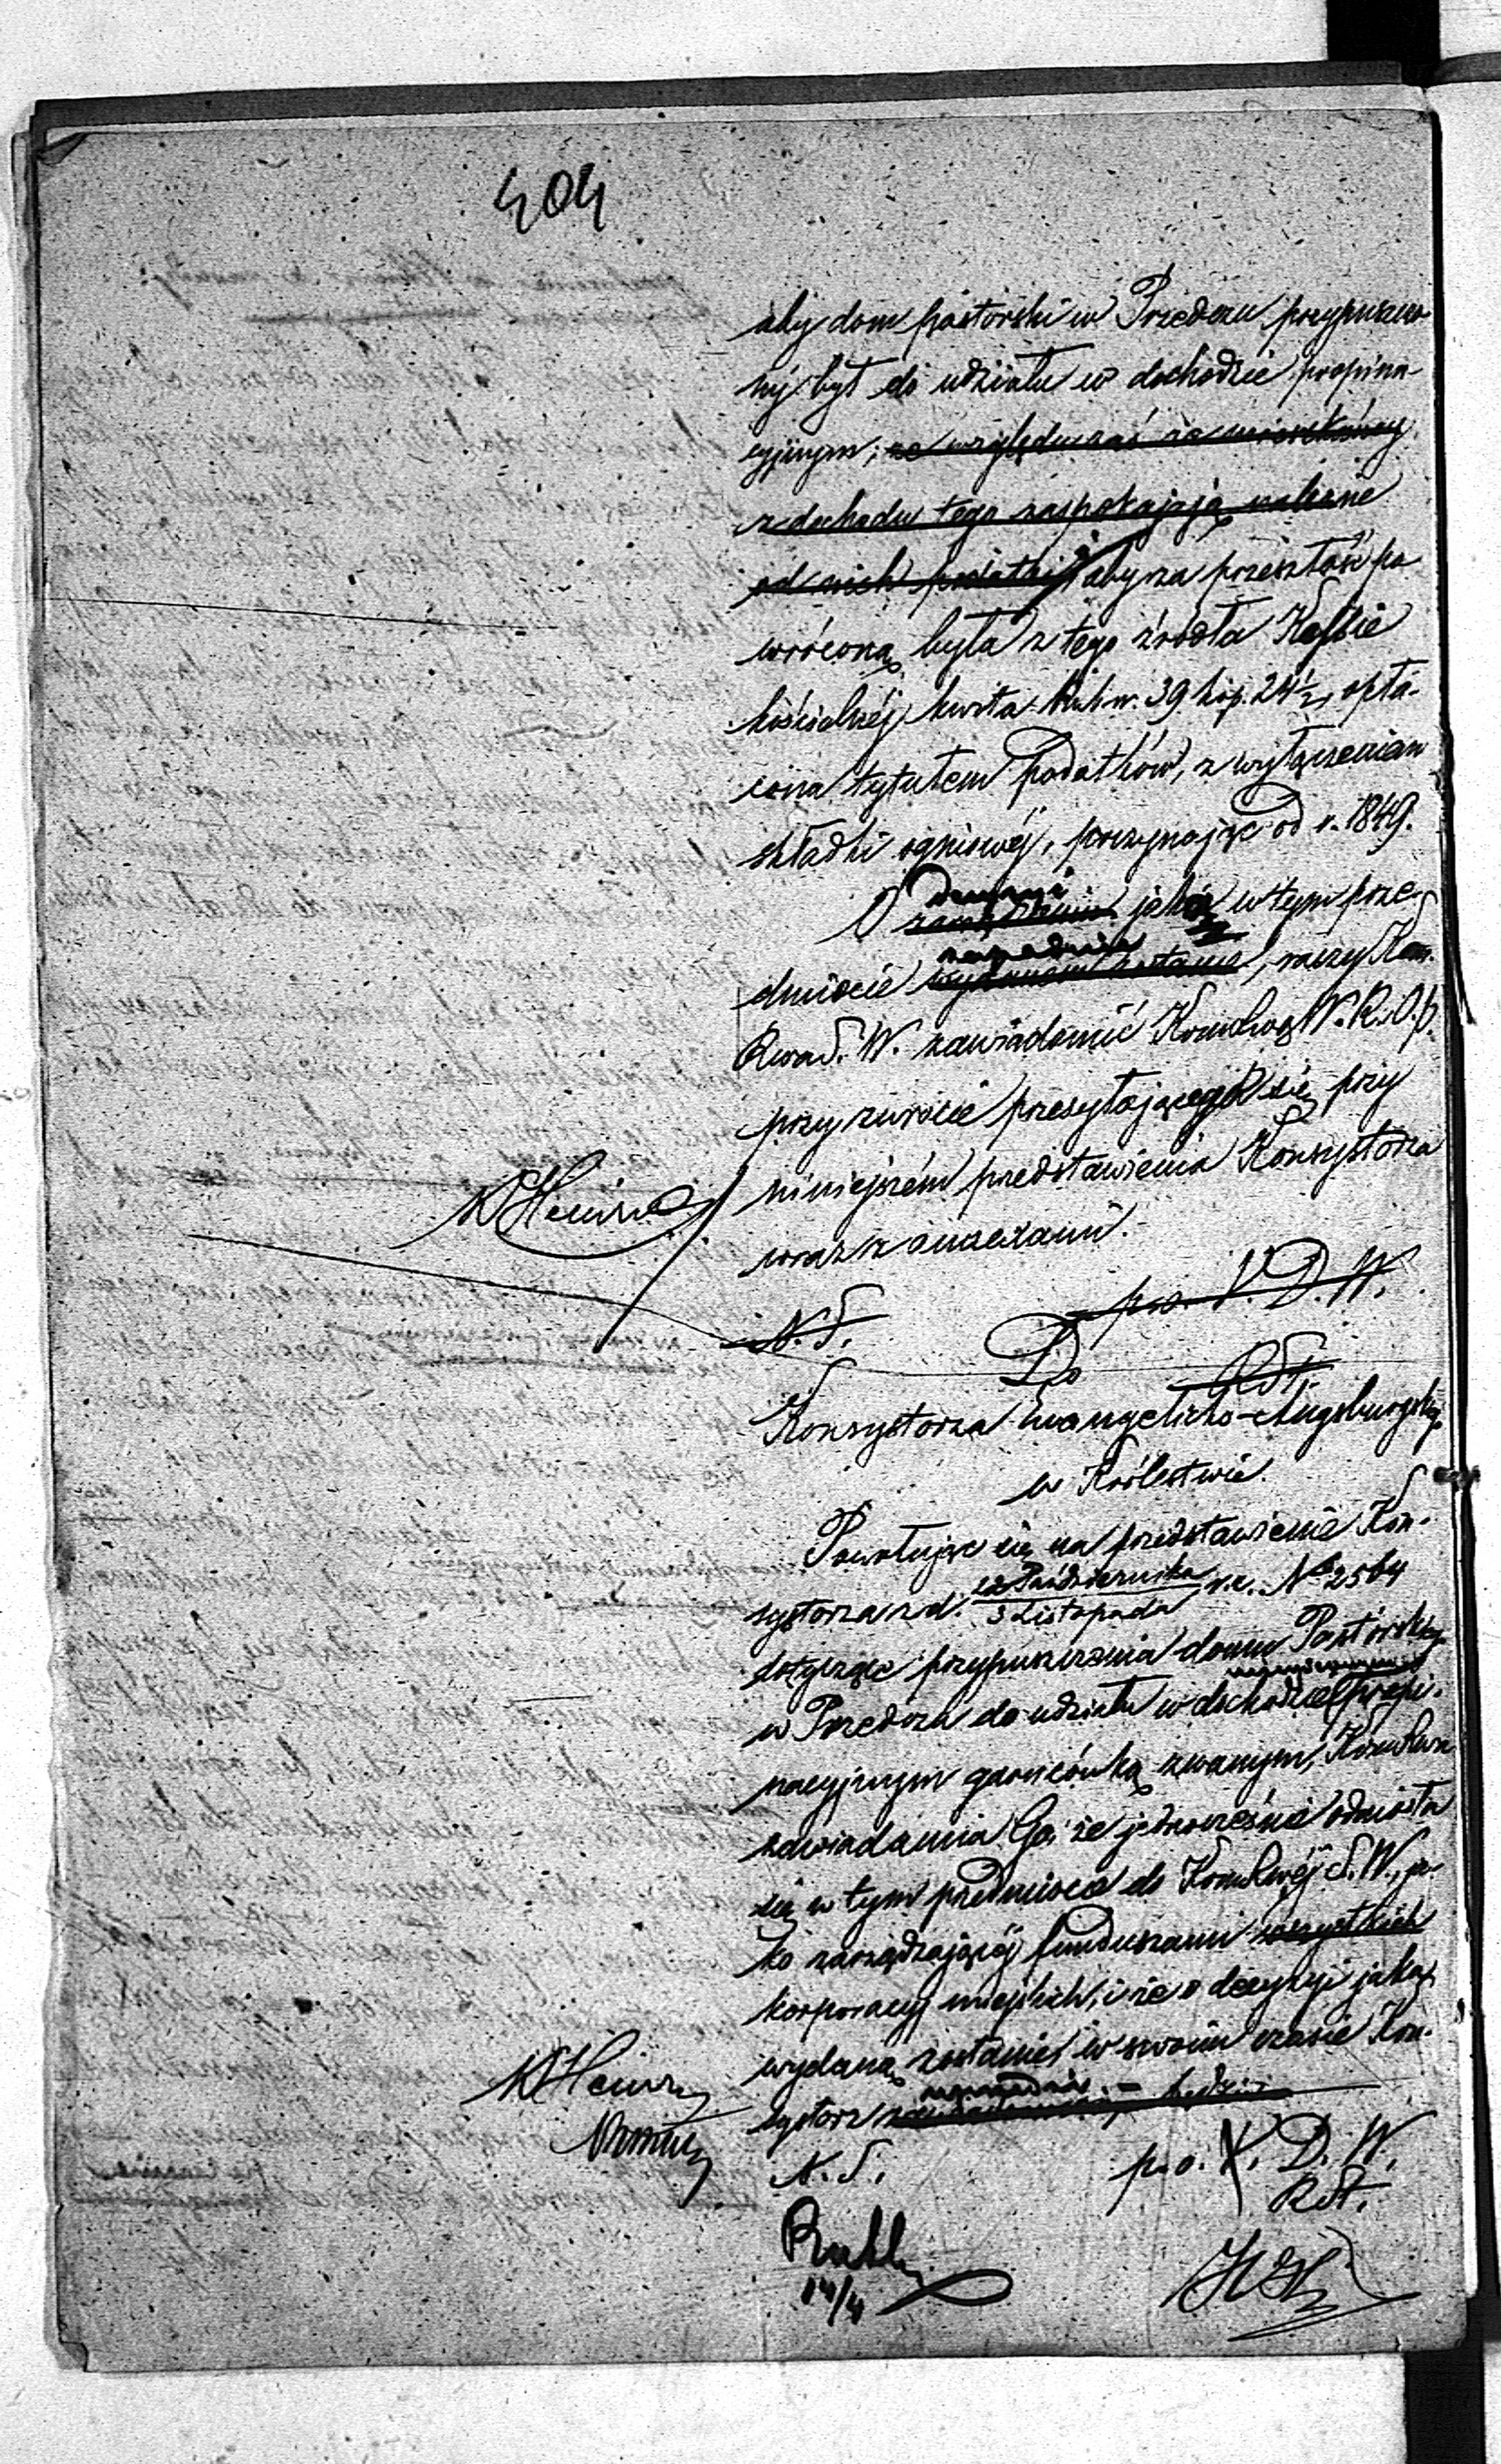 404
aby dom pastorski w Przedczu przypuszczo-
ny był do udziału w dochodzie propina-
cyjnym; ze względu zaś że mieszkańcy
z dochodu tego zaspokajają należne
od nich podatki i aby za przeszłość po
wróconą była z tego źródła Kassie
kościelnej kwota Rub sr. 39 kop. 24½, opła-
cona tytułem podatków, z wyłączeniem
składki ogniowéj, poczynając od r. 1849.
O jaka w tym prze-
dmiocie wydanem zostanie, raczy Kom.
Rwa S. W. zawiadomić Kom. Rwą W. R. i O. p.
przy zwrocie przesyłającego się przy
niniejszém przedstawienia Konsystorza
wraz z annexami.
p.o. V. D. W.
N. S.
Do
Rdt.
Konsystorza Ewangelicko-Augsburgskgo
w Królestwie.
Powołując się na przedstawienie Kon-
systorza z d. 22 Października / 3 Listopada r.z. No 2564
dotyczące przypuszczenia domu Pastorskgo
w Przedczu do udziału w dochodzie propi-
nacyjnym garncówką zwanym, Kom. Rwa
zawiadamia Go, że jednocześnie odniosła
się w tym przedmiocie do Kom. Rwéj S. W., ja-
ko zarządzającéj funduszami wszystkich
korporacyj miejskich, i że o decyzyi jaka
wydaną zostanie, w swoim czasie Kon-
systorz będzie
N. S.
p.o. V. D. W.
Rdt.
14/4